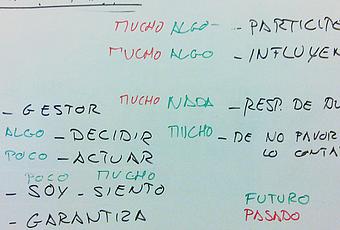 MUCHO ALGO - PARTICIPE
MUCHO ALGO - INFLUYEN
- GESTOR MUCHO NADA - RESP. DE
ALGO - DECIDIR MUCHO - DE NO PAVOR
POCO - ACTUAR LO CONTA
POCO MUCHO
- SOY - SIENTO
FUTURO
- GARANTIZA PASADO